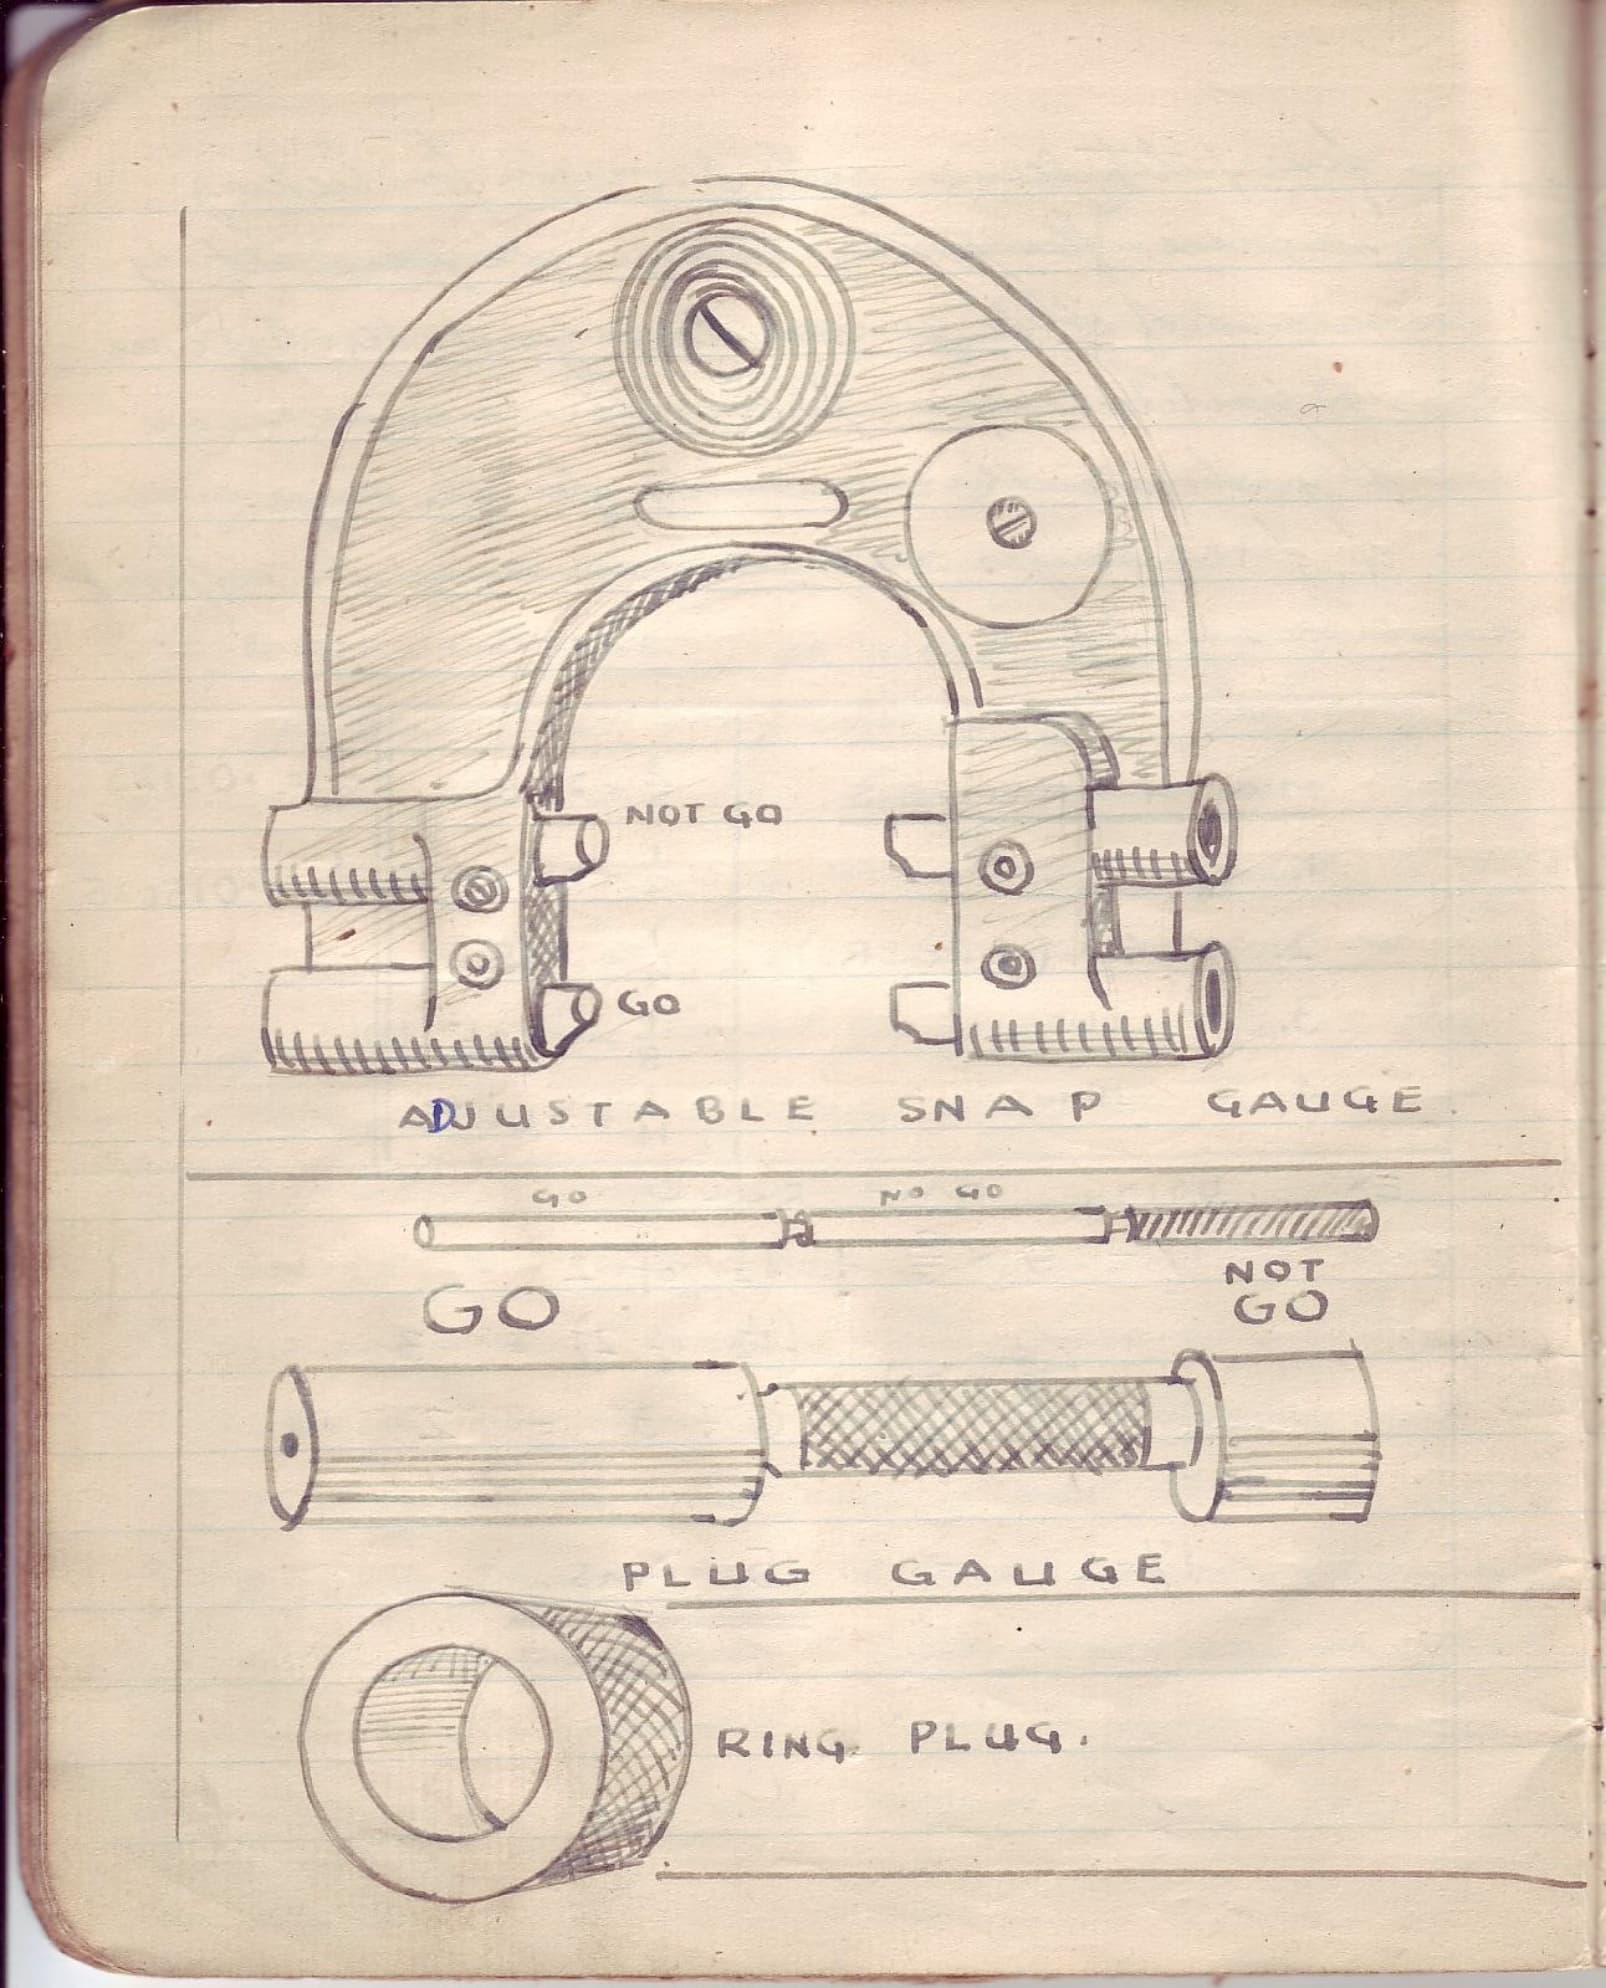 NOT GO
GO
ADJUSTABLE SNAP GAUGE.
GO NO GO
GO
NOT
GO
PLUG GAUGE
RING PLUG.